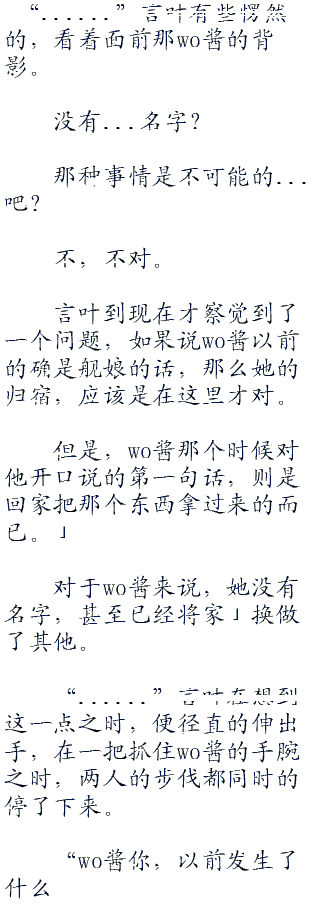 “......”言叶有些愣然
的，看着面前那wo酱的背
影。
没有...名字？
那种事情是不可能的...
吧？
不，不对。
言叶到现在才察觉到了
一个问题，如果说wo酱以前
的确是舰娘的话，那么她的
归宿，应该是在这里才对。
但是，wo酱那个时候对
他开口说的第一句话，则是
回家把那个东西拿过来的而
已。」
对于wo酱来说，她没有
名字，甚至已经将家」换做
了其他。
“......”言叶在想到
这一点之时，便径直的伸出
手，在一把抓住wo酱的手腕
之时，两人的步伐都同时的
停了下来。
“wo酱你，以前发生了
什么